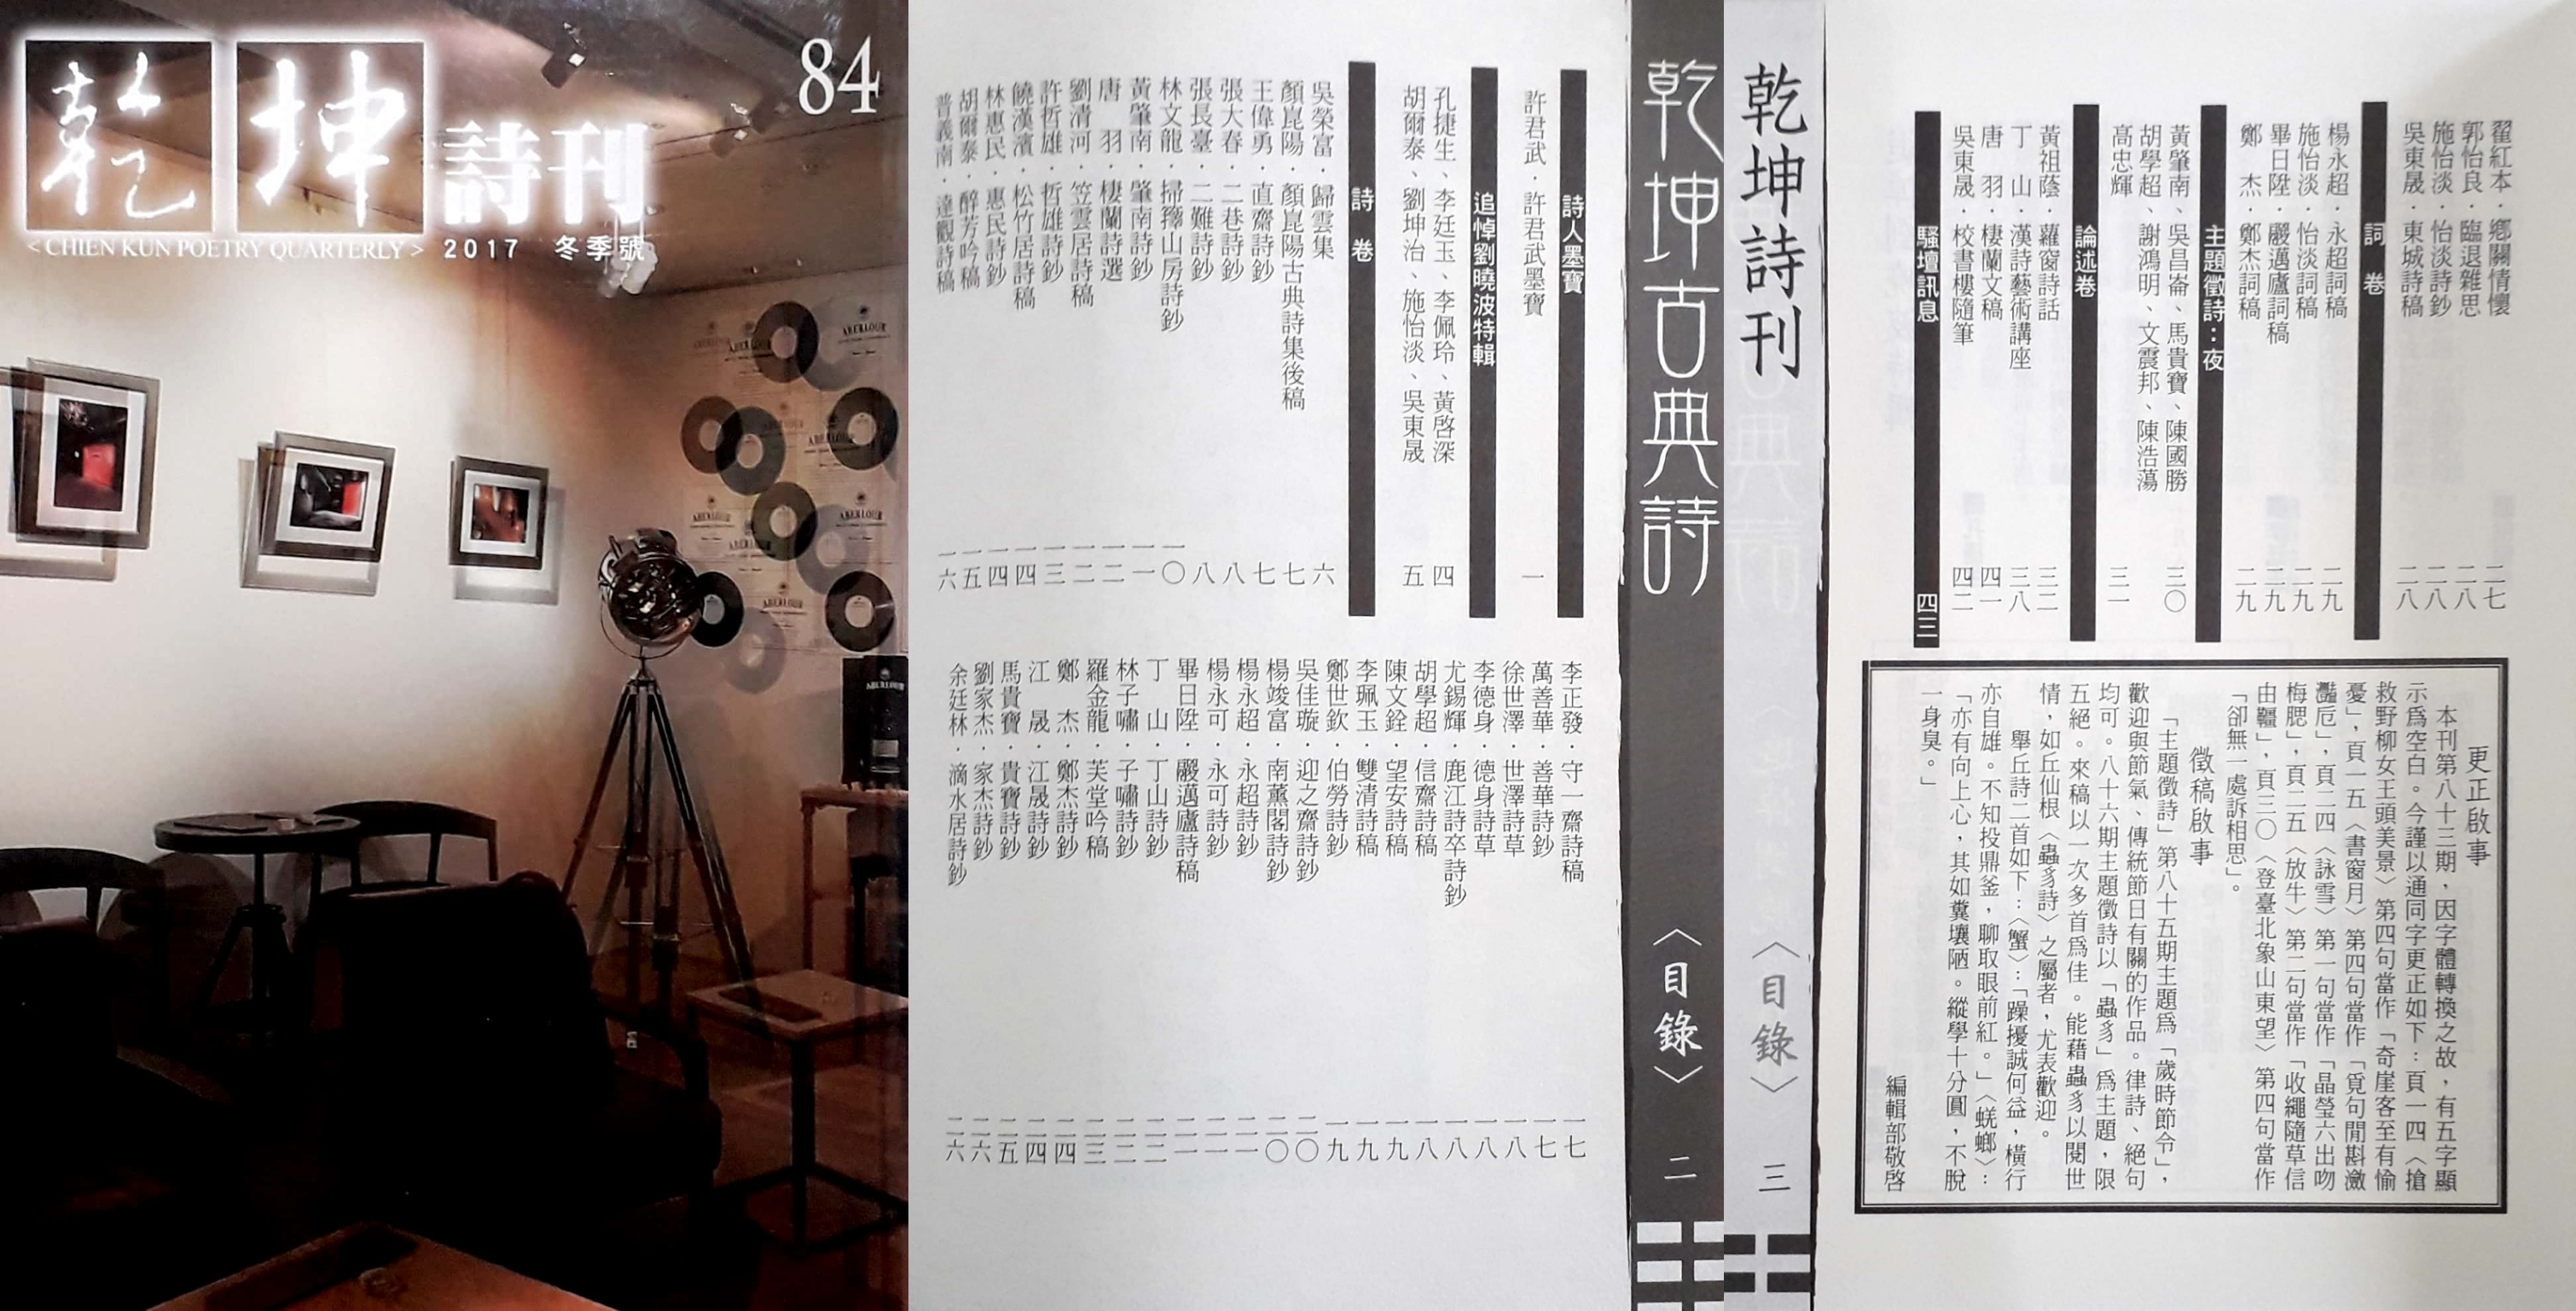 84
乾坤詩刊
<CHIEN KUN POETRY QUARTERLY> 2017 冬季號
ABERLOUR
ABERLOUR
ABERLOUR
ABERLOUR
ABERLOUR
ABERLOUR
ABERLOUR
ABERLOUR
乾坤古典詩
〈目錄〉
二
詩人墨寶
許君武．許君武墨寶 一
追悼劉曉波特輯
孔捷生、李廷玉、李佩玲、黃啓深 四
胡爾泰、劉坤治、施怡淡、吳東晟 五
詩 卷
吳榮富．歸雲集 六
顏崑陽．顏崑陽古典詩集後稿 七
王偉勇．直齋詩鈔 七
張大春．二巷詩鈔 八
張長臺．二難詩鈔 八
林文龍．掃籜山房詩鈔 一〇
黃肇南．肇南詩鈔 一一
唐 羽．棲蘭詩選 一二
劉清河．笠雲居詩稿 一二
許哲雄．哲雄詩鈔 一三
饒漢濱．松竹居詩稿 一四
林惠民．惠民詩鈔 一四
胡爾泰．醉芳吟稿 一五
普義南．達觀詩稿 一六
李正發．守一齋詩稿 一七
萬善華．善華詩鈔 一七
徐世澤．世澤詩草 一八
李德身．德身詩草 一八
尤錫輝．鹿江詩卒詩鈔 一八
胡學超．信齋詩稿 一八
陳文銓．望安詩稿 一九
李珮玉．雙清詩稿 一九
鄭世欽．伯勞詩鈔 一九
吳佳璇．迎之齋詩鈔 二〇
楊竣富．南薰閣詩鈔 二〇
楊永超．永超詩鈔 二一
楊永可．永可詩鈔 二一
畢日陞．嚴邁廬詩稿 二一
丁 山．丁山詩鈔 二二
林子嘯．子嘯詩鈔 二二
羅金龍．芙堂吟稿 二三
鄭 杰．鄭杰詩鈔 二四
江 晟．江晟詩鈔 二四
馬貴寶．貴寶詩鈔 二五
劉家杰．家杰詩鈔 二六
余廷林．滴水居詩鈔 二六
乾坤詩刊
〈目錄〉
三
翟紅本．鄉關情懷 二七
郭怡良．臨退雜思 二八
施怡淡．怡淡詩鈔 二八
吳東晟．東城詩稿 二八
詞 卷
楊永超．永超詞稿 二九
施怡淡．怡淡詞稿 二九
畢日陞．嚴邁廬詞稿 二九
鄭 杰．鄭杰詞稿 二九
主題徵詩：夜
黃肇南、吳昌崙、馬貴寶、陳國勝 三〇
胡學超、謝鴻明、文震邦、陳浩蕩
高忠輝 三一
論述卷
黃祖蔭．蘿窗詩話 三二
丁 山．漢詩藝術講座 三八
唐 羽．棲蘭文稿 四一
吳東晟．校書樓隨筆 四二
騷壇訊息 四三
更正啟事
本刊第八十三期，因字體轉換之故，有五字顯
示爲空白。今謹以通同字更正如下：頁一四〈搶
救野柳女王頭美景〉第四句當作「奇崖客至有愉
憂」，頁一五〈書窗月〉第四句當作「覓句閒斟瀲
灩卮」，頁二四〈詠雪〉第一句當作「晶瑩六出吻
梅腮」，頁二五〈放牛〉第二句當作「收繩隨草信
由韁」，頁三〇〈登臺北象山東望〉第四句當作
「卻無一處訴相思」。
徵稿啟事
「主題徵詩」第八十五期主題爲「歲時節令」，
歡迎與節氣、傳統節日有關的作品。律詩、絕句
均可。八十六期主題徵詩以「蟲豸」爲主題，限
五絕。來稿以一次多首爲佳。能藉蟲豸以閱世
情，如丘仙根〈蟲豸詩〉之屬者，尤表歡迎。
舉丘詩二首如下：〈蟹〉：「躁擾誠何益，橫行
亦自雄。不知投鼎釜，聊取眼前紅。」〈蜣螂〉：
「亦有向上心，其如糞壤陋。縱學十分圓，不脫
一身臭。」
編輯部敬啓